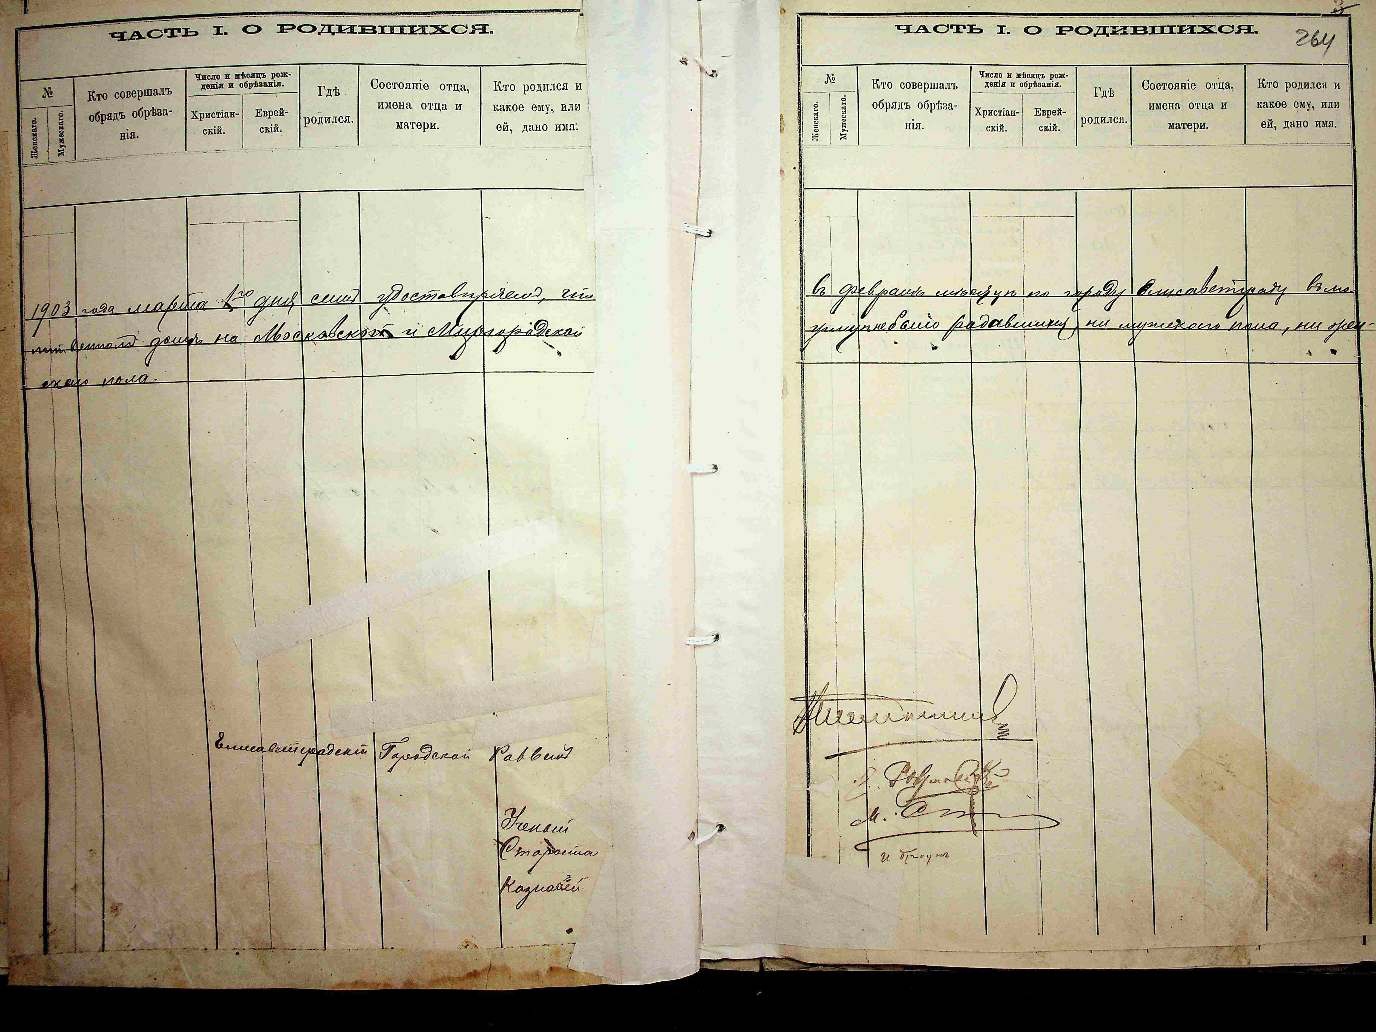 ЧАСТЬ I. О РОДИВШИХСЯ.
№
Женскаго.
Мужескаго.
Кто совершалъ
обрядъ обрѣза-
нія.
Число и мѣсяцъ рож-
денія и обрѣзанія.
Христіан-
скій.
Еврей-
скій.
Гдѣ
родился.
Состояніе отца,
имена отца и
матери.
Кто родился и
какое ему, или
ей, дано имя.
1903 года марта 1го дня симъ удостовѣряемъ, что
домъ на Московской и Миргородской
скаго пола.
Елисаветградскій Городской Раввинъ
Ученый
Староста
Казначей
264
ЧАСТЬ I. О РОДИВШИХСЯ.
№
Женскаго.
Мужескаго.
Кто совершалъ
обрядъ обрѣза-
нія.
Число и мѣсяцъ рож-
денія и обрѣзанія.
Христіан-
скій.
Еврей-
скій.
Гдѣ
родился.
Состояніе отца,
имена отца и
матери.
Кто родился и
какое ему, или
ей, дано имя.
въ февралѣ мѣсяцѣ по городу Елисаветграду въ мо
небыло родившихся ни мужскаго пола, ни жен-
М.